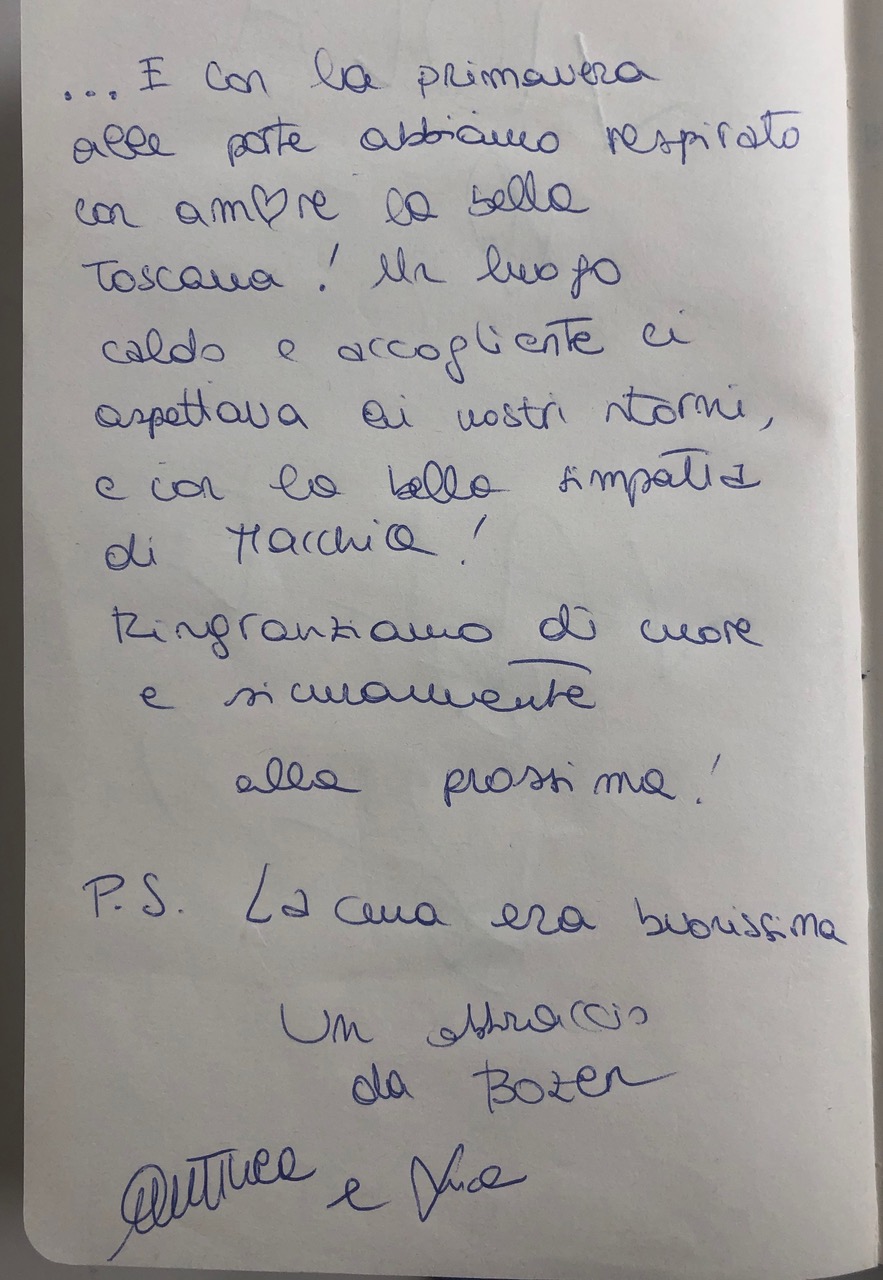 ... E con la primavera
alle porte abbiamo respirato
con am♡re la bella
Toscana! Un luogo
caldo e accogliente ci
aspettava ai nostri ritorni,
e con la bella simpatia
di Macchia!
Ringranziamo di cuore
e sicuramente
alla prossima!
P.S. La cena era buonissima
Un abbraccio
da Bozen
e Luca